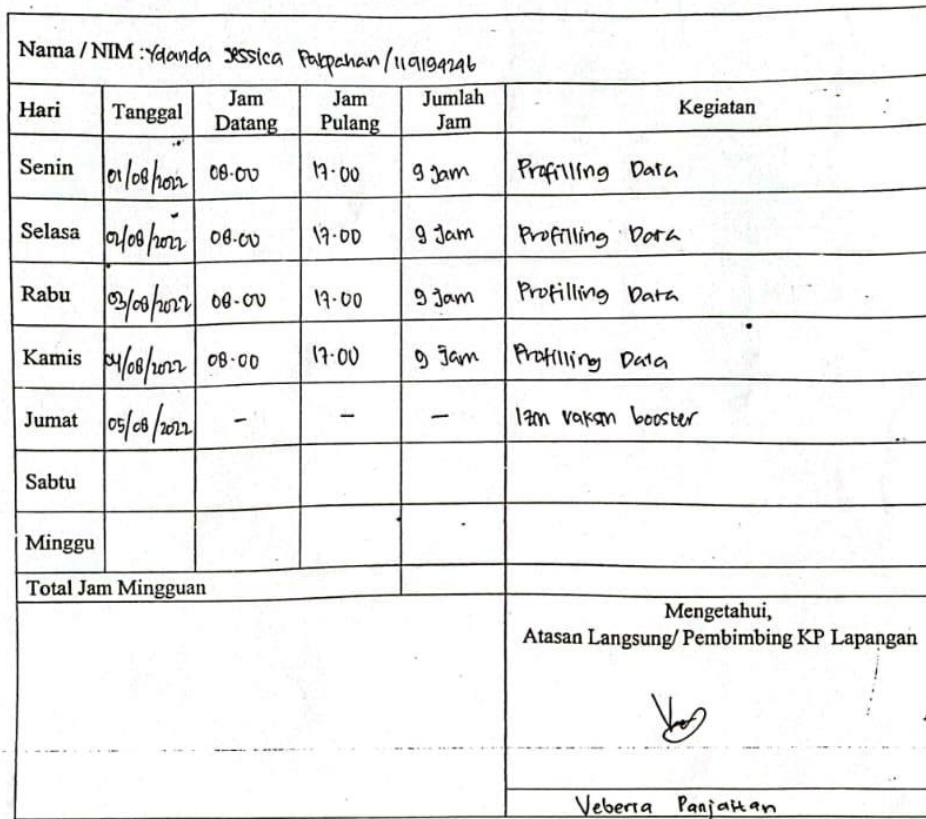 Nama / NIM : Yolanda Jessica Pakpahan/119194246
Hari Tanggal Jam Datang Jam Pulang Jumlah Jam Kegiatan
Senin 01/08/2022 08.00 17.00 9 Jam Profilling Data
Selasa 02/08/2022 08.00 17.00 9 Jam Profilling Data
Rabu 03/08/2022 08.00 17.00 9 Jam Profilling Data
Kamis 04/08/2022 08.00 17.00 9 Jam Profilling Data
Jumat 05/08/2022 - - - Izin vaksin booster
Sabtu
Minggu
Total Jam Mingguan
Mengetahui,
Atasan Langsung/ Pembimbing KP Lapangan
Panjaitan